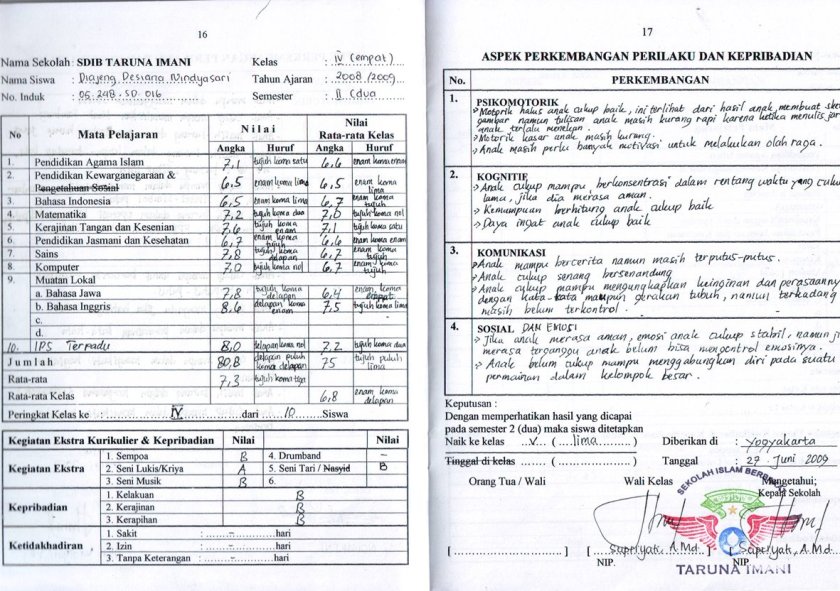 16
Nama Sekolah : SDIB TARUNA IMANI Kelas : IV (empat)
Nama Siswa : Diajeng Desiana Windyasari Tahun Ajaran : 2008/2009
No. Induk : 05.248.SD.016 Semester : II (dua
No Mata Pelajaran Nilai Nilai Rata-rata Kelas
Angka Huruf Angka Huruf
1. Pendidikan Agama Islam 7,1 tujuh koma satu 6,6 enam koma enam
2. Pendidikan Kewarganegaraan &
Pengetahuan Sosial 6,5 enam koma lima 6,5 enam koma lima
3. Bahasa Indonesia 6,5 enam koma lima 6,7 enam koma tujuh
4. Matematika 7,2 tujuh koma dua 7,0 tujuh koma nol
5. Kerajinan Tangan dan Kesenian 7,6 tujuh koma enam 7,1 tujuh koma satu
6. Pendidikan Jasmani dan Kesehatan 6,7 enam koma tujuh 6,6 enam koma enam
7. Sains 7,8 tujuh koma delapan 6,7 enam koma tujuh
8. Komputer 7,0 tujuh koma nol 6,7 enam koma tujuh
9. Muatan Lokal
a. Bahasa Jawa 7,8 tujuh koma delapan 6,4 enam koma empat
b. Bahasa Inggris 8,6 delapan koma enam 7,5 tujuh koma lima
c.
d.
10. IPS Terpadu 8,0 delapan koma nol 7,2 tujuh koma dua
Jumlah 80,8 delapan puluh koma delapan 75 tujuh puluh lima
Rata-rata 7,3 tujuh koma tiga
Rata-rata Kelas 6,8 enam koma delapan
Peringkat Kelas ke : IV dari 10 Siswa
Kegiatan Ekstra Kurikulier & Kepribadian Nilai Nilai
Kegiatan Ekstra 1. Sempoa B 4. Drumband –
2. Seni Lukis/Kriya A 5. Seni Tari / Nasyid B
3. Seni Musik B 6.
Kepribadian 1. Kelakuan B
2. Kerajinan B
3. Kerapihan B
Ketidakhadiran 1. Sakit : – hari
2. Izin : – hari
3. Tanpa Keterangan : – hari
17
ASPEK PERKEMBANGAN PERILAKU DAN KEPRIBADIAN
No. PERKEMBANGAN
1. PSIKOMOTORIK
Motorik halus anak cukup baik, ini terlihat dari hasil anak membuat
gambar namun tulisan anak masih kurang rapi karena ketika menulis
anak terlalu menekan.
Motorik kasar anak masih kurang.
Anak masih perlu banyak motivasi untuk melakukan olah raga.
2. KOGNITIF
Anak cukup mampu berkonsentrasi dalam rentang waktu yang cukup
lama, jika dia merasa aman.
Kemampuan berhitung anak cukup baik
Daya ingat anak cukup baik
3. KOMUNIKASI
Anak mampu bercerita namun masih terputus-putus.
Anak cukup senang bersenandung
Anak cukup mampu mengungkapkan keinginan dan perasaanny
dengan kata-kata maupun gerakan tubuh, namun terkadang
masih belum terkontrol.
4. SOSIAL DAN EMOSI
Jika anak merasa aman, emosi anak cukup stabil, namun ji
merasa terganggu anak belum bisa mengontrol emosinya.
Anak belum cukup mampu menggabungkan diri pada suatu
permainan dalam kelompok besar.
Keputusan :
Dengan memperhatikan hasil yang dicapai
pada semester 2 (dua) maka siswa ditetapkan
Naik ke kelas V (lima) Diberikan di : Yogyakarta
Tinggal di kelas (...) Tanggal : 27 Juni 2009
Orang Tua / Wali Wali Kelas Mengetahui;
Kepala Sekolah
SEKOLAH ISLAM
[ ] [ Supriyati, A.Md. ] [ Supriyati, A.Md.
NIP. NIP.
TARUNA IMANI